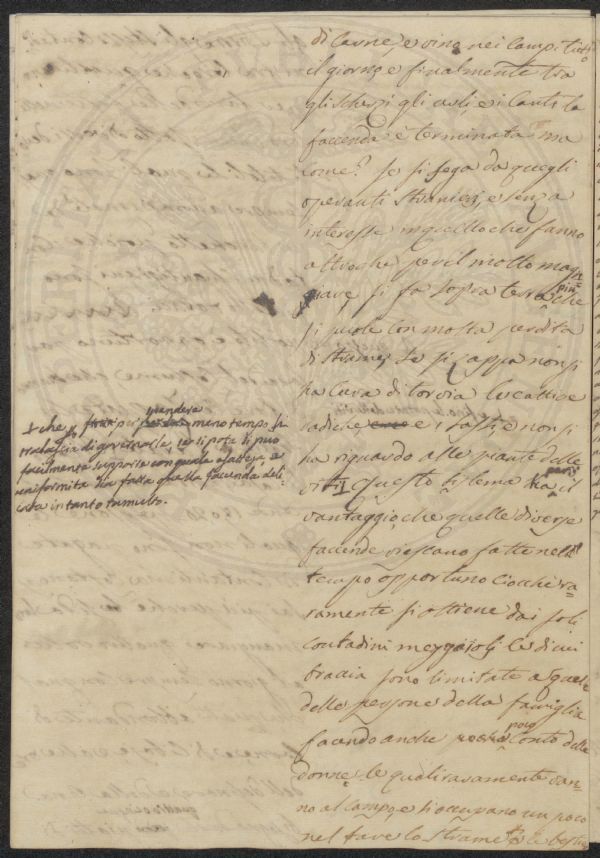 di Carne, e vino nei Campi tutto
il giorno e finalmente tra
gli scherzi gli urli, e i Canti la
faccenda è terminata ma
come? Se si sega da quegli
operanti stranieri, e senza
interesse in quello che fanno
altro che per il molto man-
giare, si fa sopra terra più che
si puole con mosta perdita
di strame; se si zappa non si
ha Cura di tor via le cattive
radiche e i sassi e non si
ha riguardo alle piante delle
viti Questo sistema ha però il
vantaggio, che quelle diverse
faccende riescano fatte nell
tempo opportuno ciocche ra-
ramente si ottiene dai soli
contadini mezzaioli le di cui
braccia sono limitate a quel-
delle persone della famiglia
facendo anche poco Conto delle
donne le quali rasamente van-
no al campo, e si occupano un poco
nel fare lo strame le bestie
che per perdere meno tempo si
tralascia di governarle, se si pota si può
facilmente supporre con quale esattezza, e
uniformità sia fatta quella facenda deli-
cata in tanto tumulto.